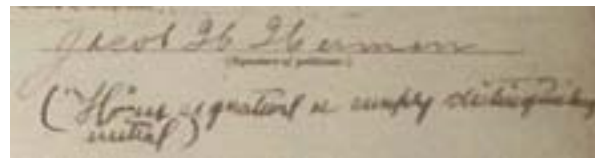 Jacob H Herman
(Signature of petitioner.)
("H" in signature is simply distinguishing
initial)